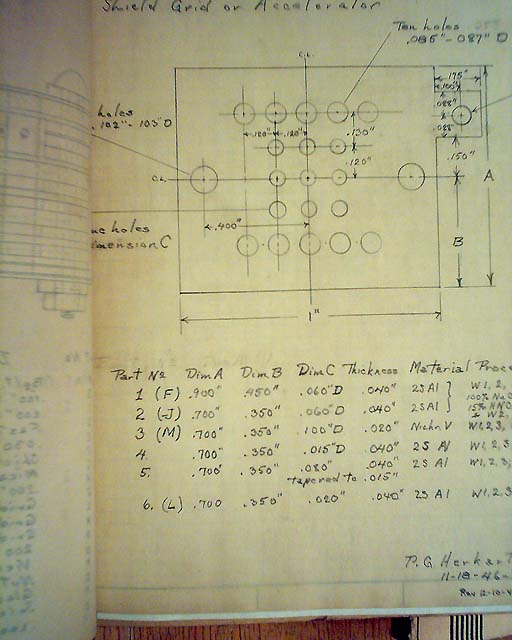 Shield Grid or Accelerator
Ten holes
.085"-.087" D
C.L.
.175"
.100"
holes
.102"-.103"D
.088"
.088"
.120"
.120"
.130"
.120"
.150"
C.L.
A
holes
Dimension C
.400"
B
1"
Part No Dim A Dim B Dim C Thickness Material
1 (F) .900" .450" .060"D .040" 2S Al W1, 2,
2 (J) .700" .350" .060"D .040" 2S Al
3 (M) .700" .350" .100"D .020" Nichr. V W1, 2, 3
4. .700" .350" .015"D .040" 2S Al W1, 2, 3
5. .700" .350" .080" .040" 2S Al W1, 2, 3,
tapered to .015"
6. (L) .700 .350" .020" .040" 2S Al W1, 2, 3
11-18-46
Rev 12-10-4